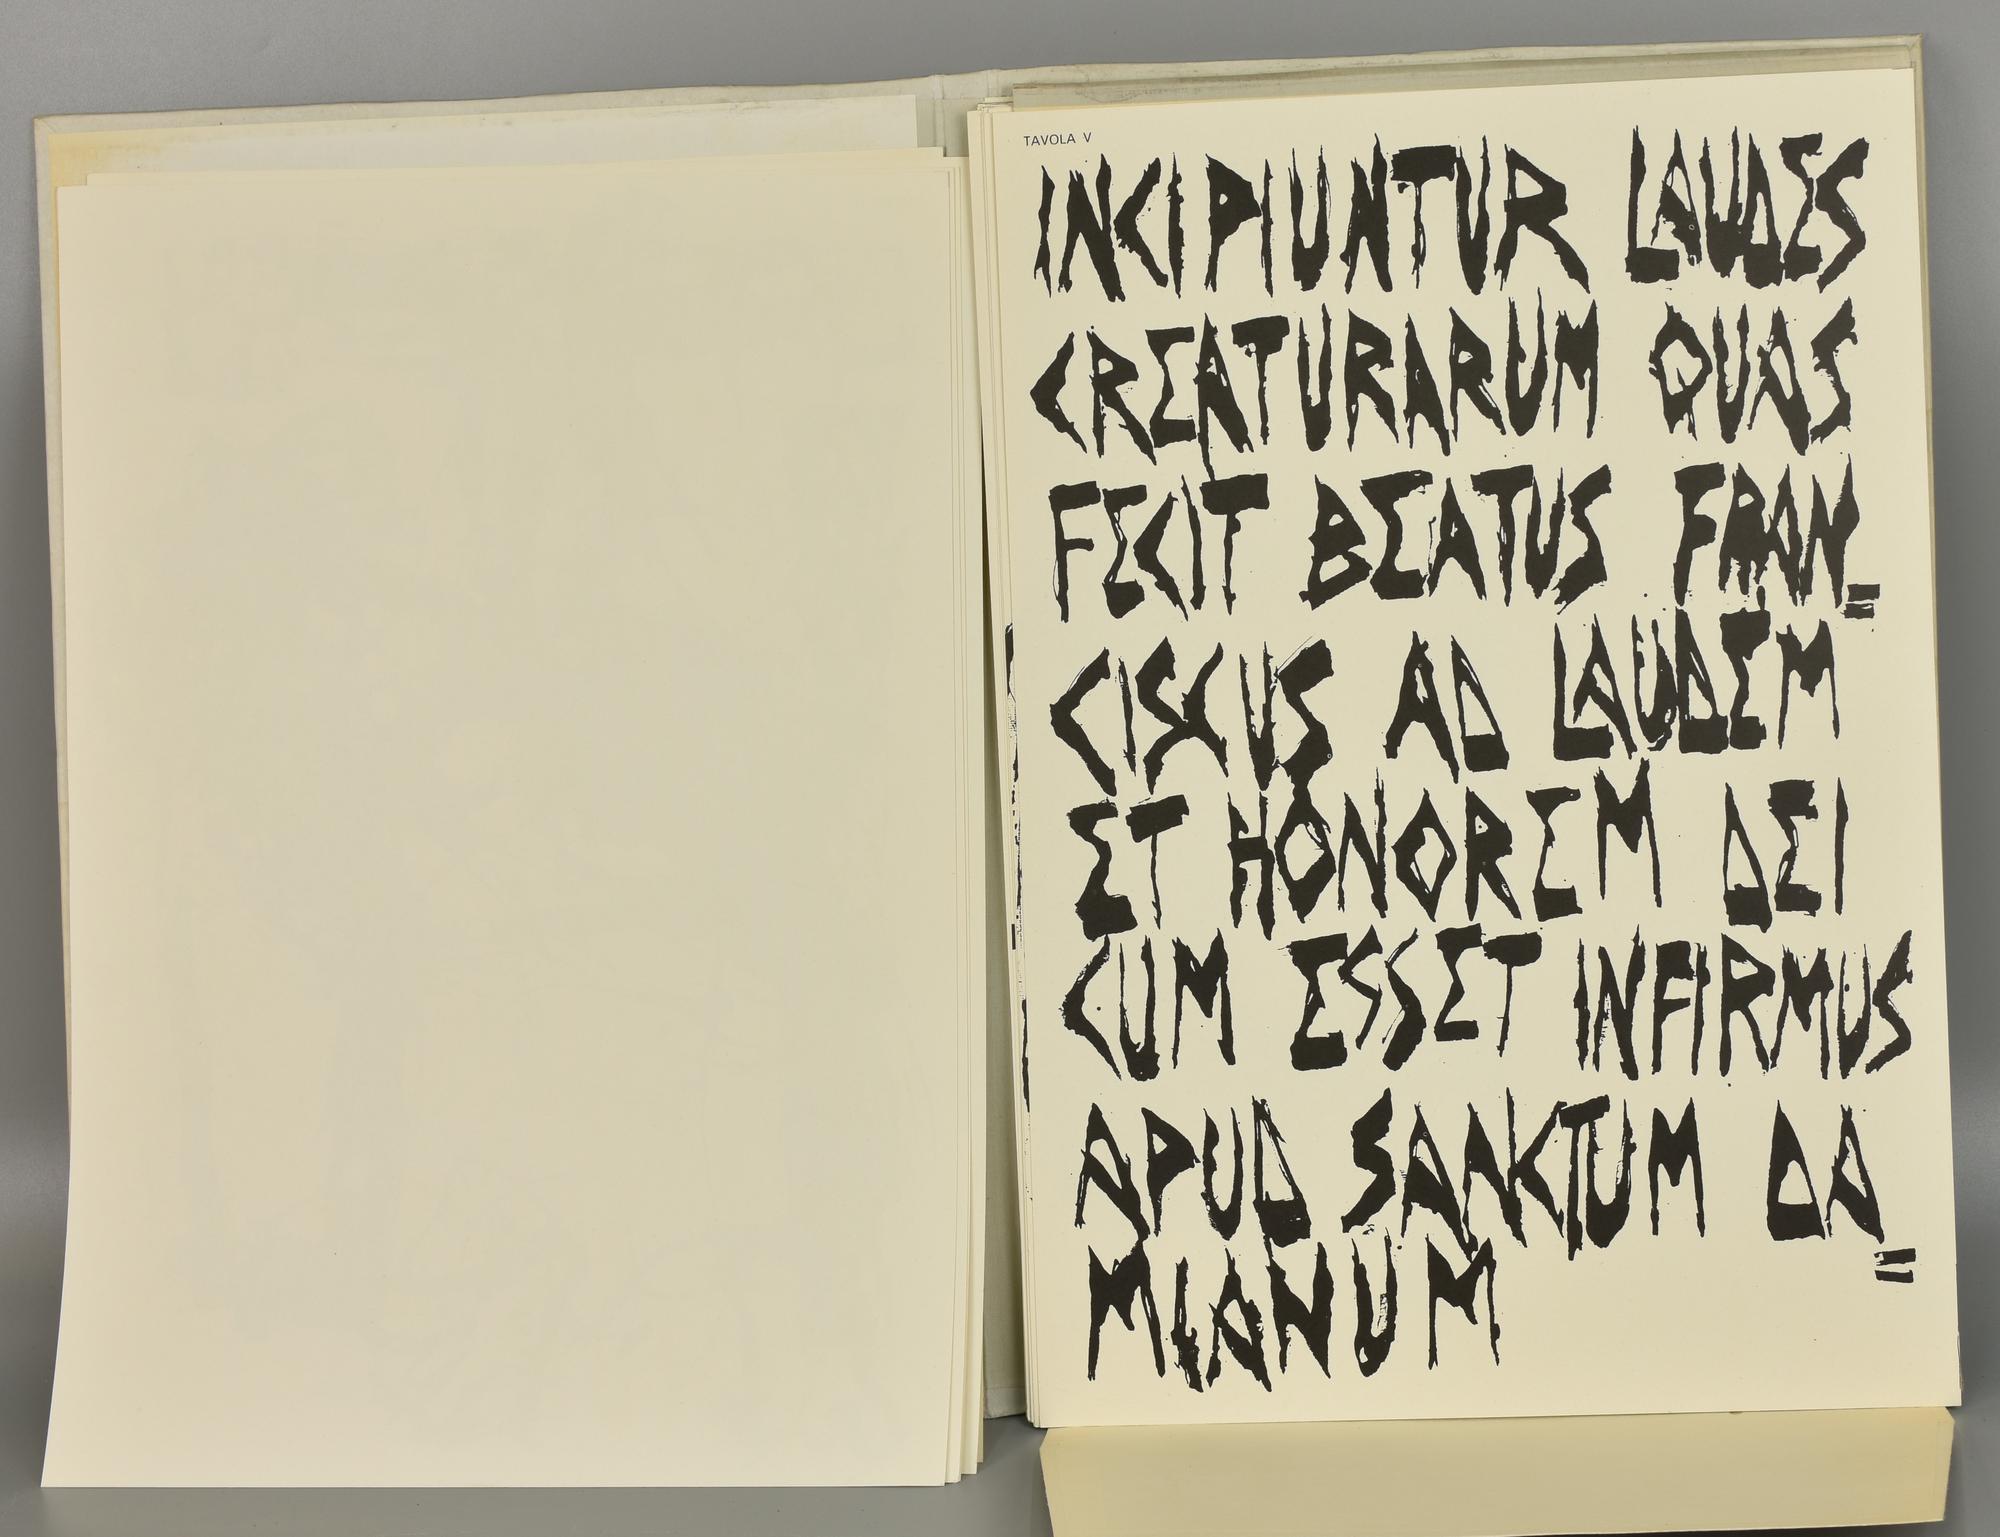 TAVOLA V
INCIPIUNTUR LAUDES
CREATURARUM QUAS
FECIT BEATUS FRAN=
CISCUS AD LAUDEM
ET HONOREM DEI
CUM ESSET INFIRMUS
APUD SANKTUM DA=
MIANUM